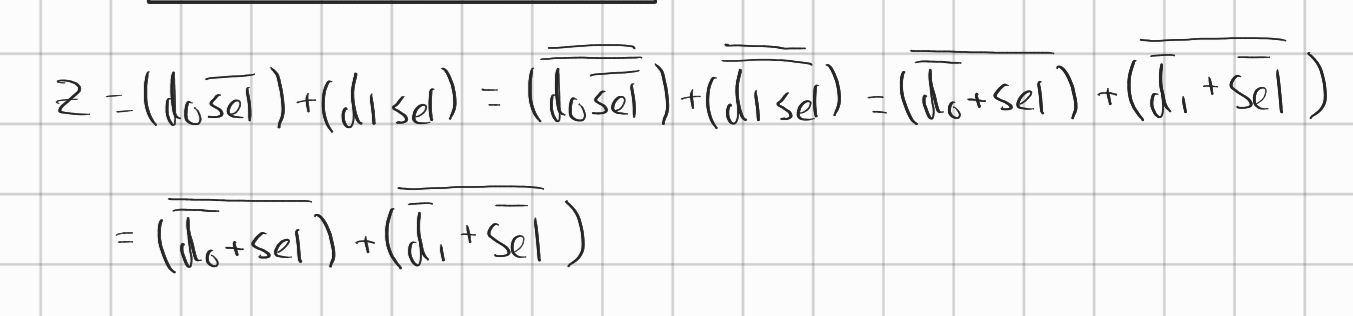 Z = (d₀ s̅e̅l̅) + (d1 sel) = (d₀ s̅e̅l̅)̿ + (d1 sel)̿ = (d̅₀ + sel)̅ + (d̅₁ + s̅e̅l̅)̅
= (d̅₀ + sel)̅ + (d̅₁ + s̅e̅l̅)̅